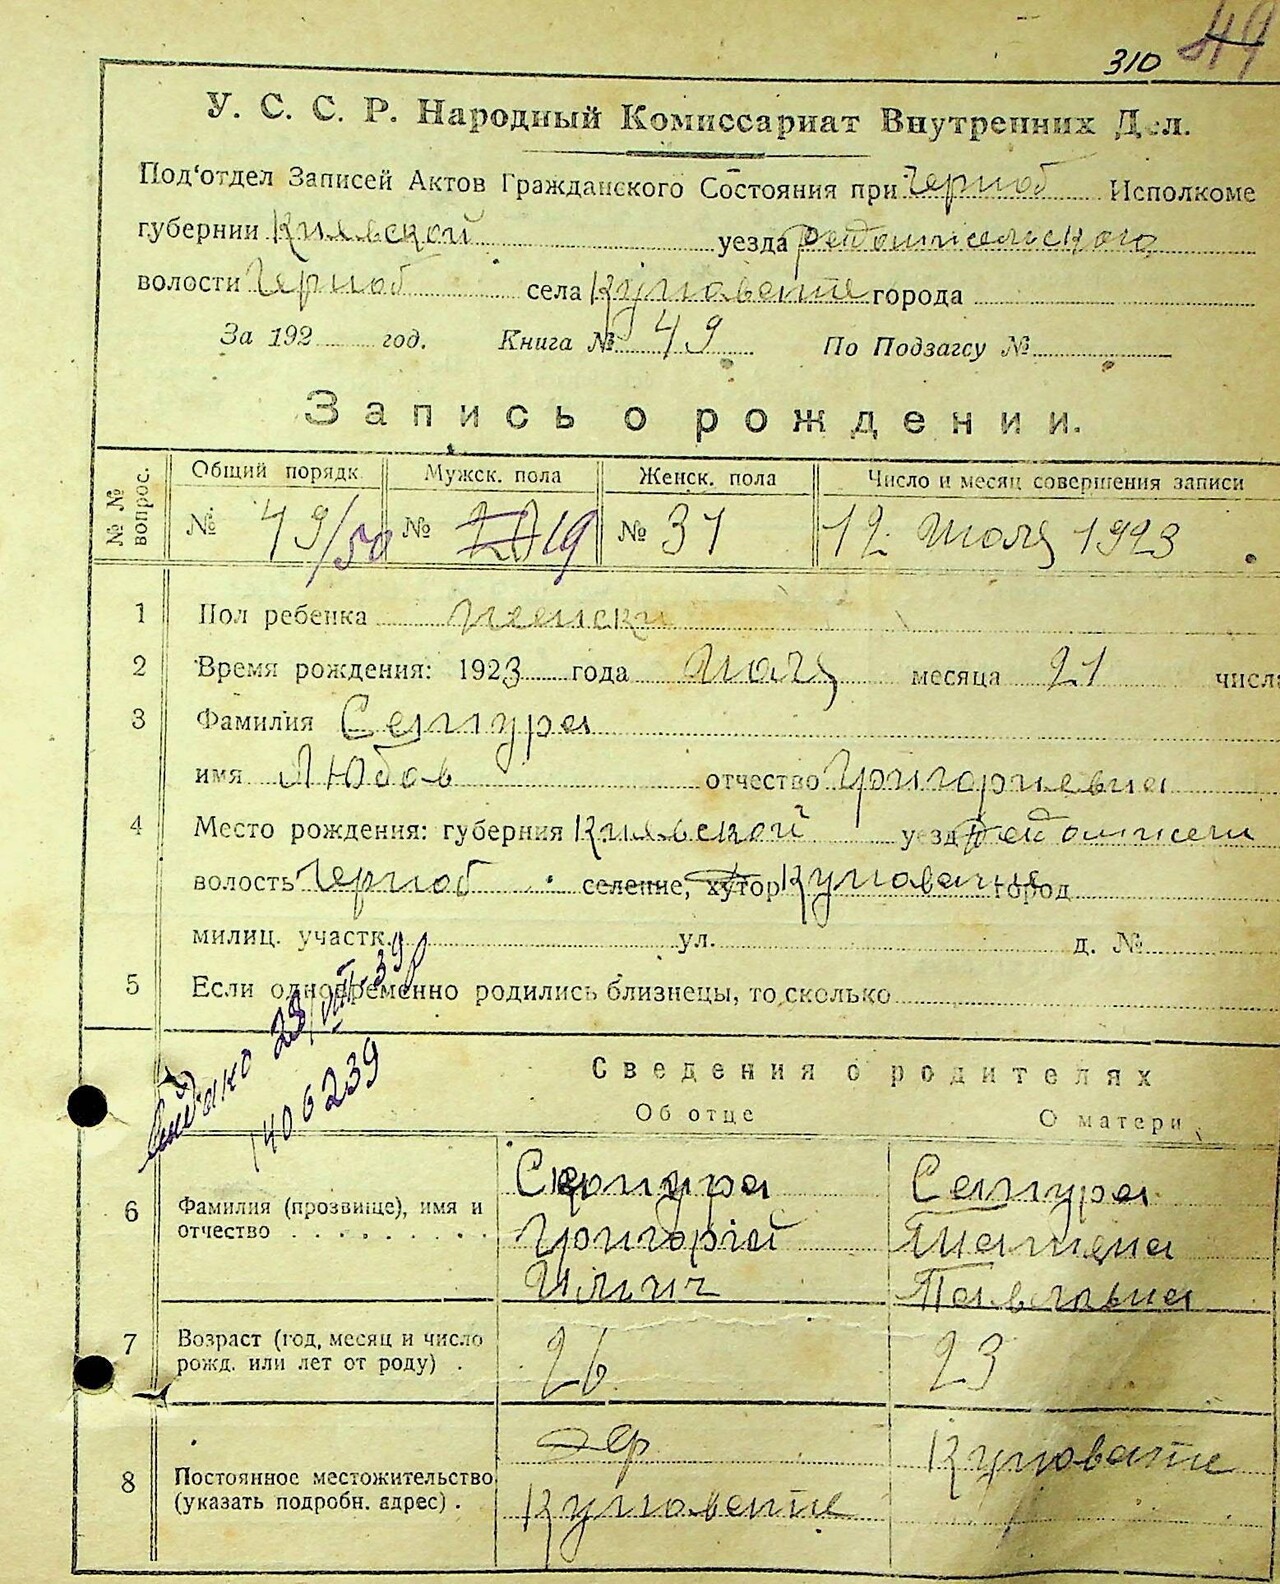 310 49
У. С. С. Р. Народный Комиссариат Внутренних Дел.
Под'отдел Записей Актов Гражданского Состояния при Черноб Исполкоме
губернии Киевской уезда Радомисельского
волости Черноб села Куповате города
За 192 год. Книга № 49 По Подзагсу №
Запись о рождении.
№ № вопрос. Общий порядк. Мужск. пола Женск. пола Число и месяц совершения записи
№ 49/50 № 19 № 31 12 Июля 1923
1 Пол ребенка женски
2 Время рождения: 1923 года Июля месяца 21 числа
3 Фамилия Сепура
имя Любов отчество Григориевна
4 Место рождения: губерния Киевской уезд Радомисели
волость Черноб селение, хутор Куповатие город
милиц. участк. ул. д. №
5 Если одновременно родились близнецы, то сколько
Видано 28/VIII-39р
1406239
Сведения о родителях
Об отце О матери
6 Фамилия (прозвище), имя и отчество
Сепура Сепура
Григорій Татяна
Илыч Павловна
7 Возраст (год, месяц и число рожд. или лет от роду) .
26 23
8 Постоянное местожительство (указать подробн. адрес) .
Куповате Куповате